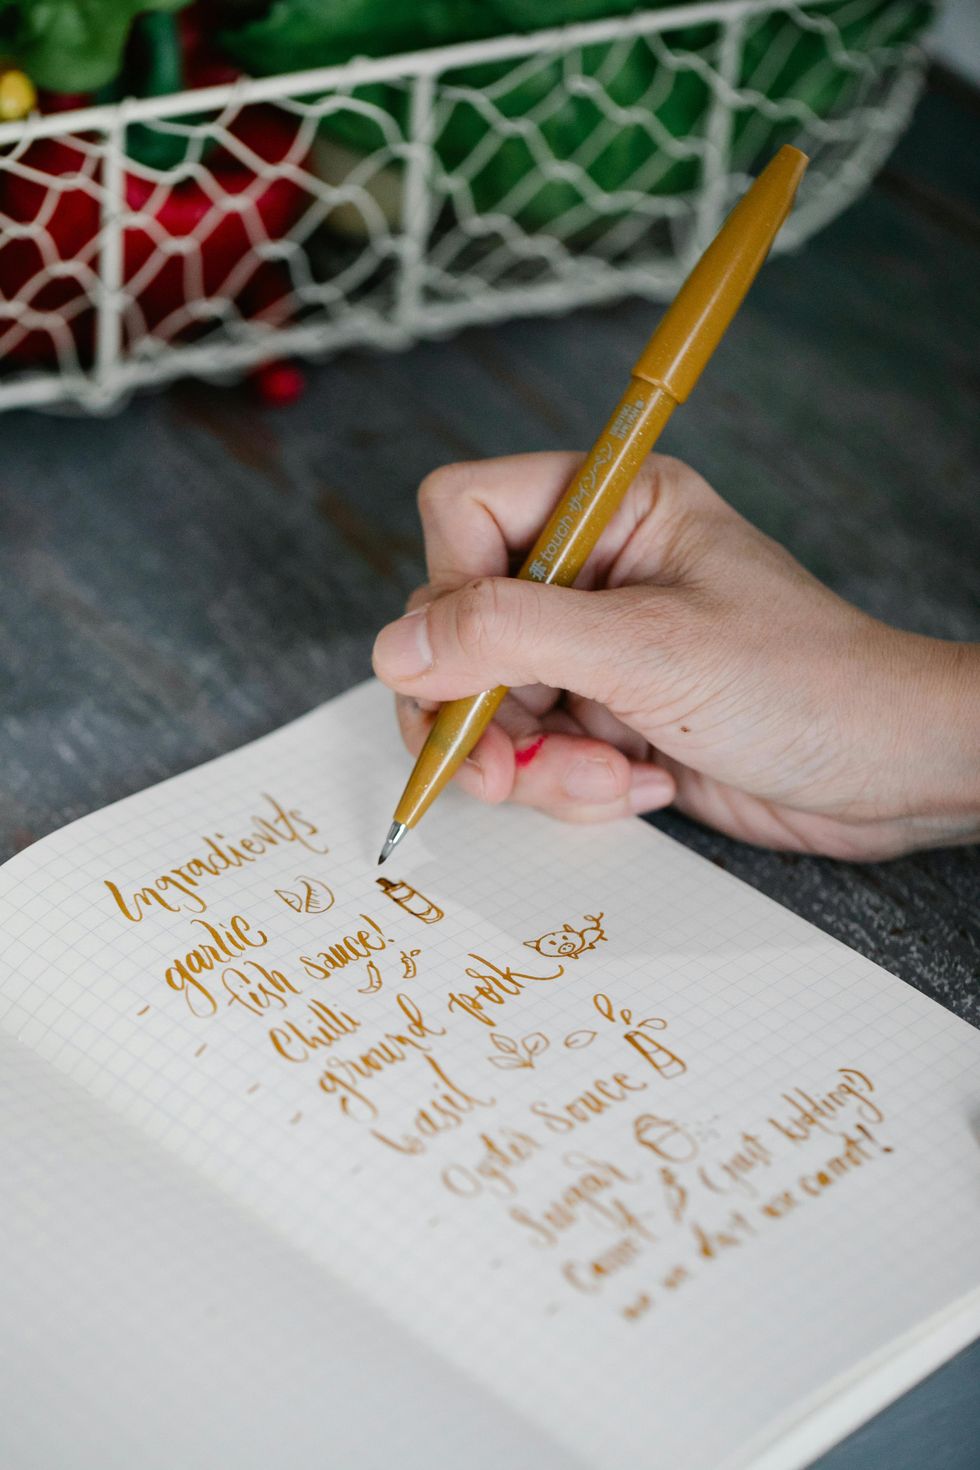 Ingradients
- garlic
- fish sauce!
- Chilli
- ground pork
- basil
- Oyster Sauce
- Sugar
- Carrot (just kidding!)
we don't use carrot!
touch サインペン